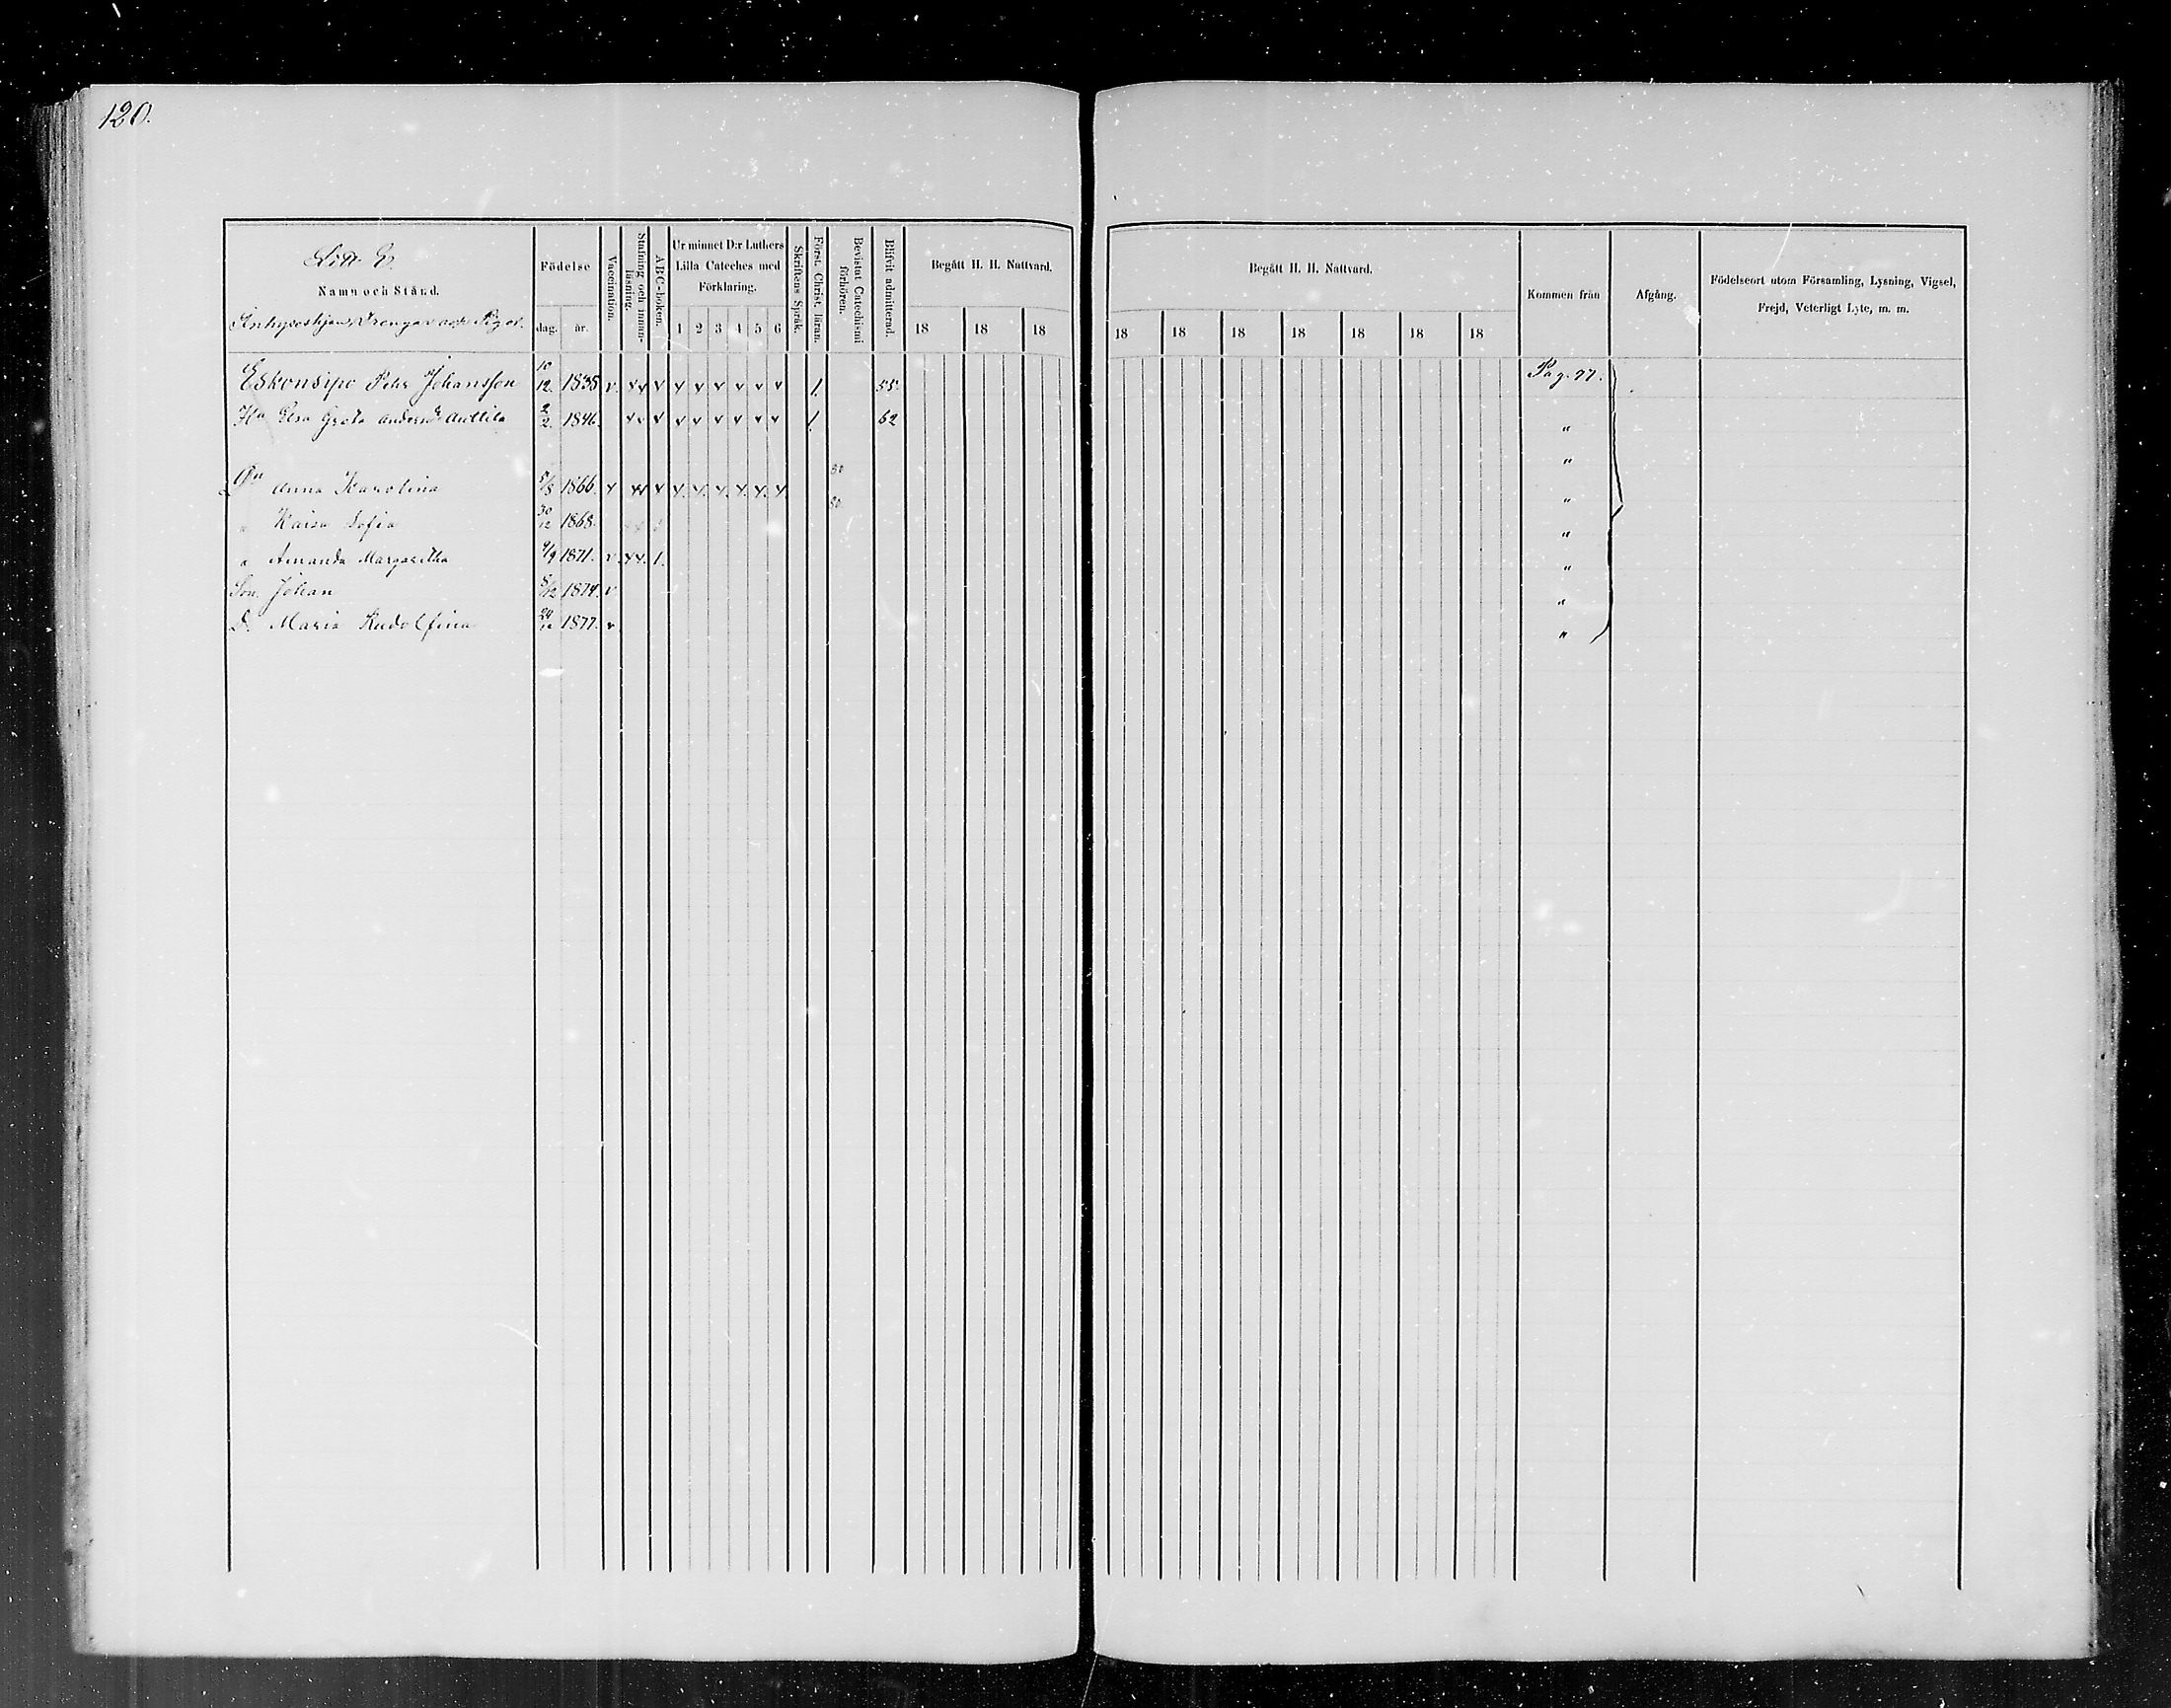 120.
Litt. E.
Namn och Stånd.
Inhyseshjon, Drengar och Pigor.
Födelse
dag. år.
Vaccination.
Stafning och innanläsning.
ABC-boken.
Ur minnet D:r Luthers
Lilla Cateches med
Förklaring.
1 2 3 4 5 6
Skriftens Språk.
Först. Christ. läran.
Bevistat Catechismi förhören.
Blifvit admitterad.
Begått H. H. Nattvard.
18 18 18
Begått H. H. Nattvard.
18 18 18 18 18 18 18
Kommen från
Afgång.
Födelseort utom Församling, Lysning, Vigsel,
Frejd, Veterligt Lyte, m. m.
Eskonsipo Pehr Johansson 10/12. 1838 v. v v v v v v v v v 1. 55. Pag. 97.
Hu Elsa Greta Andersdr Anttila 2/2. 1846. v v v v v v v v v 1. 62 "
" 80
Dr Anna Karolina 5/8 1866. v v v v v. v. v. v. v. v. "
" Kaisa Sofia 30/12 1868. 80. "
" Amanda Margaretha 9/9 1871. v. v v. 1. "
Son Johan 5/12 1874. v "
D. Maria Rudolfina 24/12 1877. v "